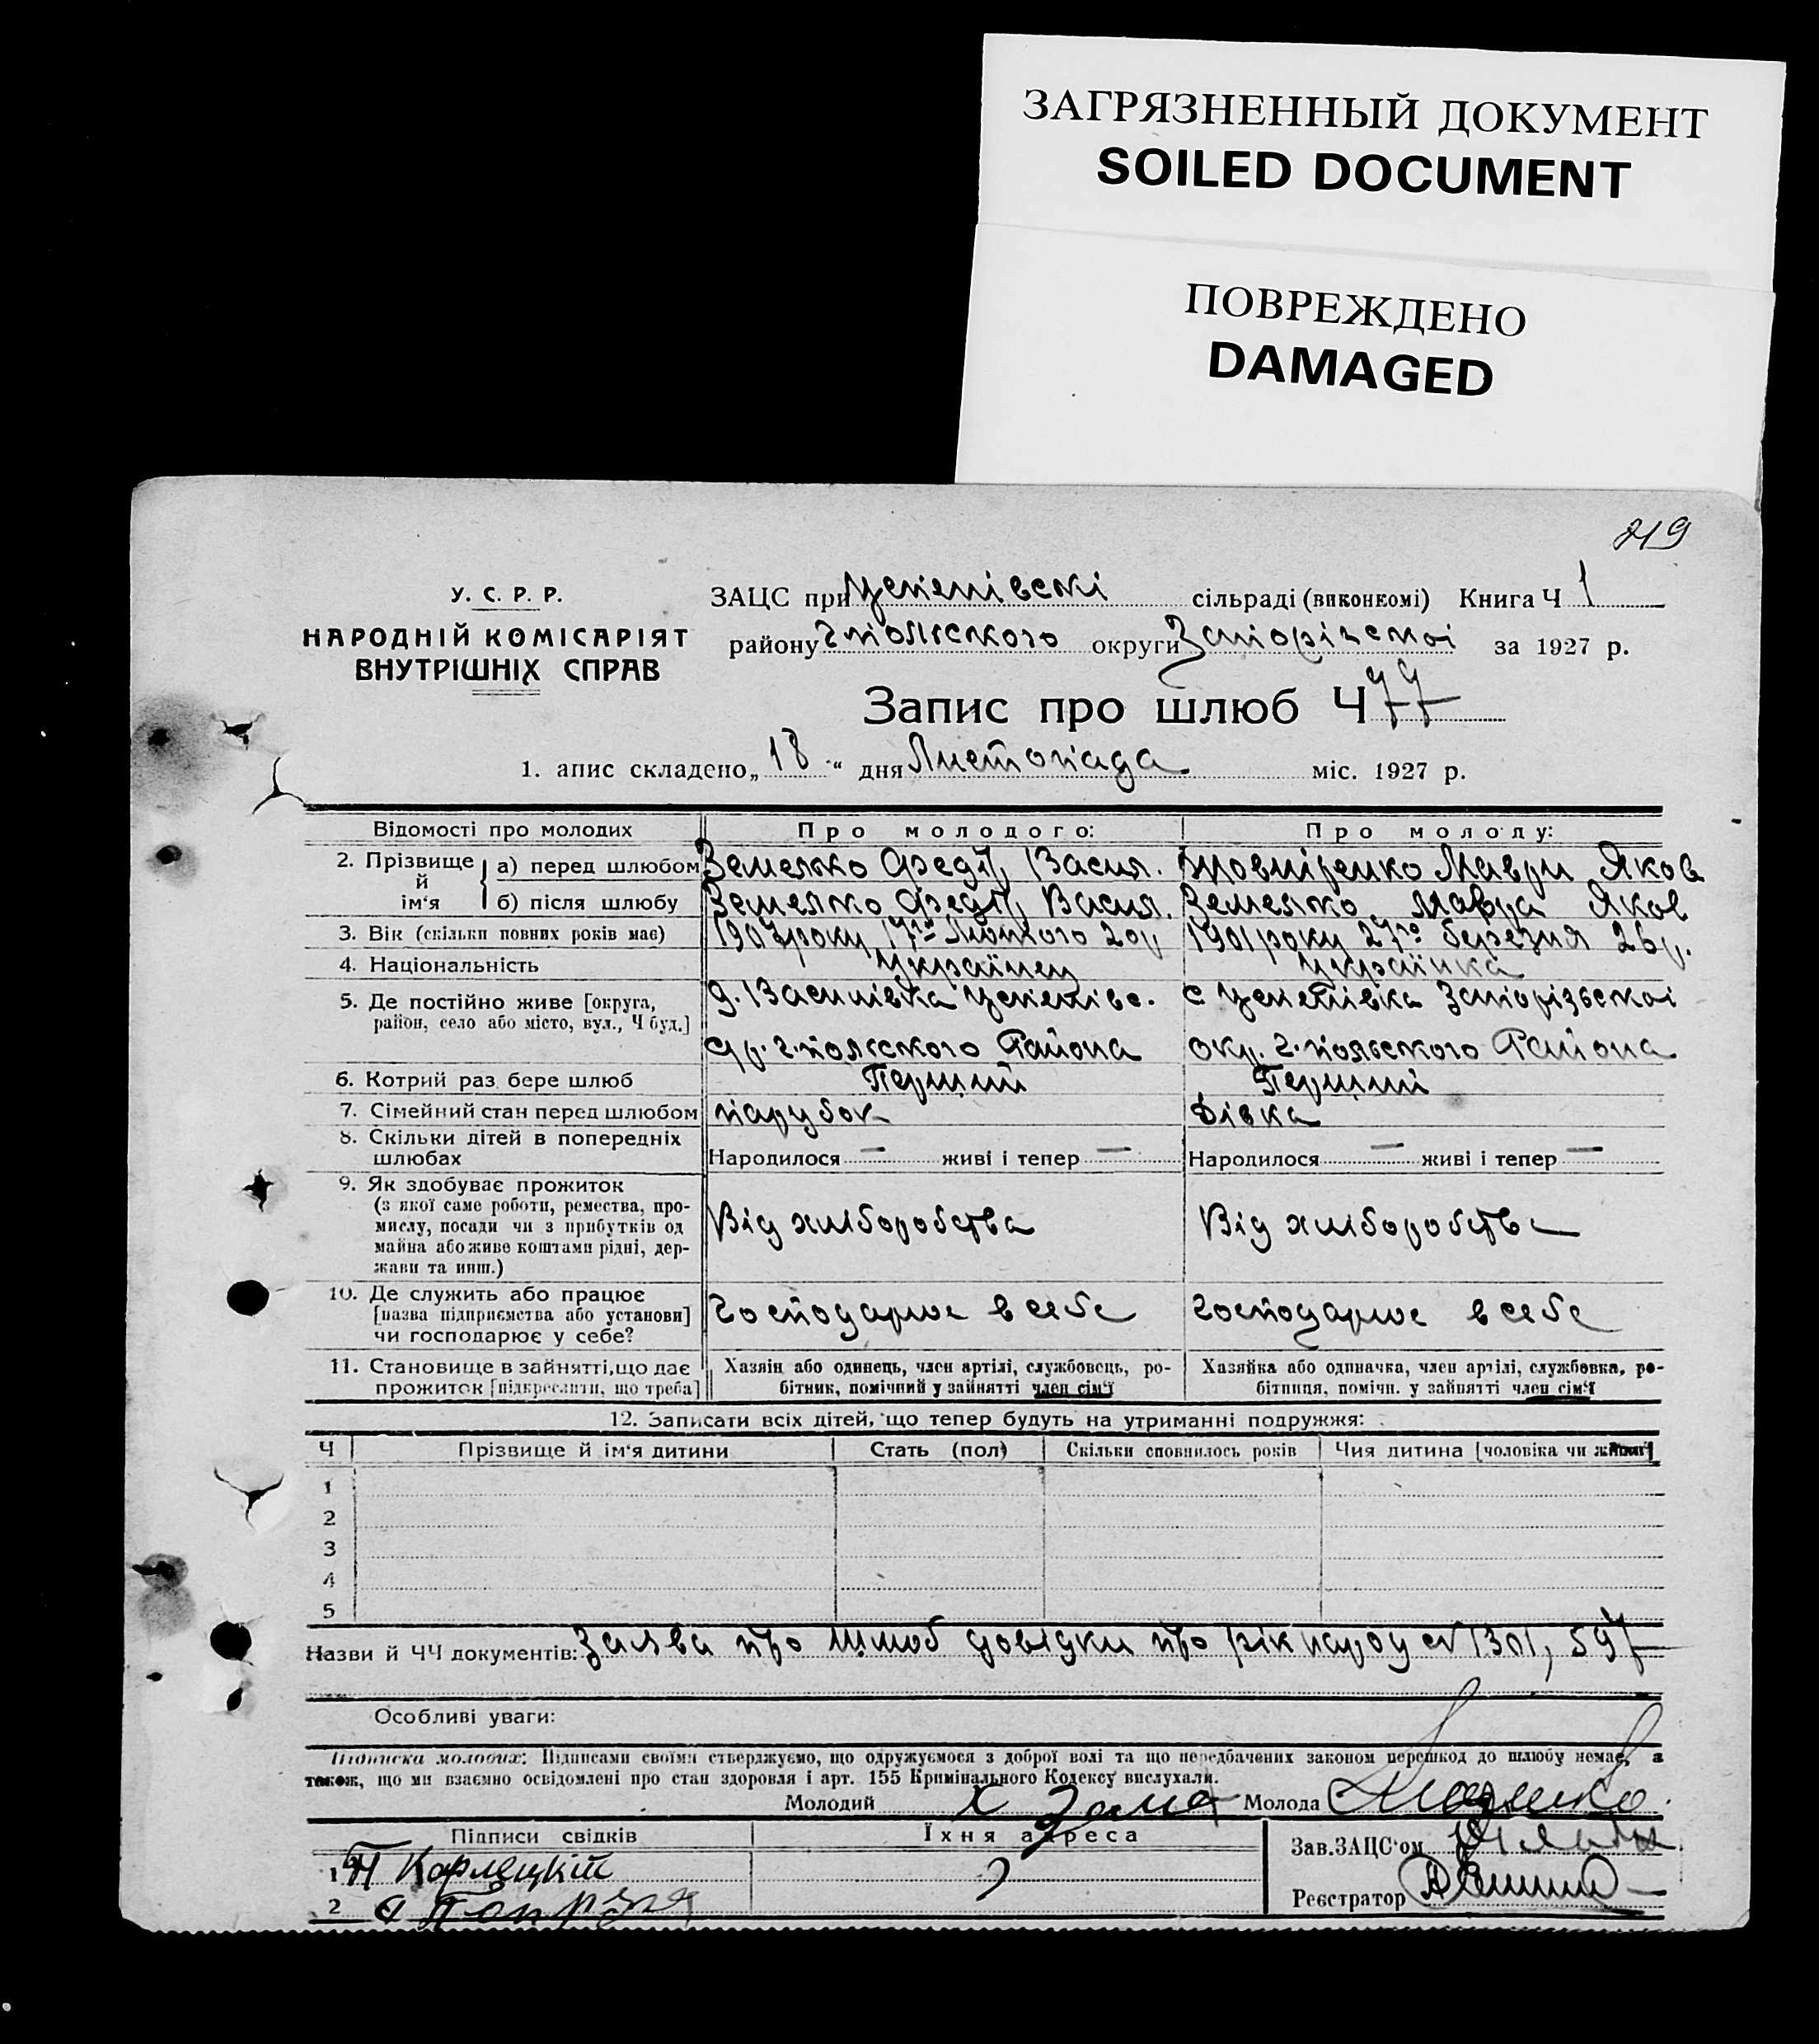 ЗАГРЯЗНЕННЫЙ ДОКУМЕНТ
SOILED DOCUMENT
ПОВРЕЖДЕНО
DAMAGED
219
У. С. Р. Р.
НАРОДНІЙ КОМІСАРІЯТ
ВНУТРІШНІХ СПРАВ
ЗАЦС при сільраді (виконкомі) Книга Ч 1
району г польського округи Запорізської за 1927 р.
Запис про шлюб Ч 77
1. апис складено „18“ дня Листопада міс. 1927 р.
Відомості про молодих Про молодого: Про молоду:
2. Прізвище й ім‘я а) перед шлюбом Земелко Федір Васил. Мавра Яков
б) після шлюбу Земелко Федір Васил. Земелко Мавра Яков
3. Вік (скільки повних років має) 1907 року 17го Лютого 20 р 1901 року 27го березня 26 р.
4. Національність Українец українка
5. Де постійно живе [округа, район, село або місто, вул., Ч буд.] д. Василівка с Запорізської
г. польского Района окр. г. польського Района
6. Котрий раз бере шлюб Перший Перший
7. Сімейний стан перед шлюбом парубок дівка
8. Скільки дітей в попередніх шлюбах Народилося — живі і тепер — Народилося — живі і тепер —
9. Як здобуває прожиток
(з якої саме роботи, ремества, про-
мислу, посади чи з прибутків од
майна або живе коштами рідні, дер-
жави та инш.)
Від хліборобства Від хліборобства
10. Де служить або працює
[назва підприємства або установи]
чи господарює у себе?
Господарює в себе Господарює в себе
11. Становище в зайнятті, що дає
прожиток [підкреслити, що треба]
Хазяїн або одинець, член артілі, службовець, ро-
бітник, помічний у зайнятті член сім‘ї
Хазяйка або одиначка, член артілі, службовка, ро-
бітниця, помічн. у зайнятті член сім‘ї
12. Записати всіх дітей, що тепер будуть на утриманні подружжя:
Ч Прізвище й ім‘я дитини Стать (пол) Скільки сповнилось років Чия дитина [чоловіка чи жінки]
1
2
3
4
5
Назви й ЧЧ документів: Заява про шлюб довідки про рік народ 1301, 597
Особливі уваги:
Підписка молодих: Підписами своїми стверджуємо, що одружуємося з доброї волі та що передбачених законом перешкод до шлюбу немає, а
також, що ми взаємно освідомлені про стан здоровля і арт. 155 Кримінального Кодексу вислухали.
Молодий Молода
Підписи свідків Їхня адреса Зав. ЗАЦС‘ом
1
2 Реєстратор